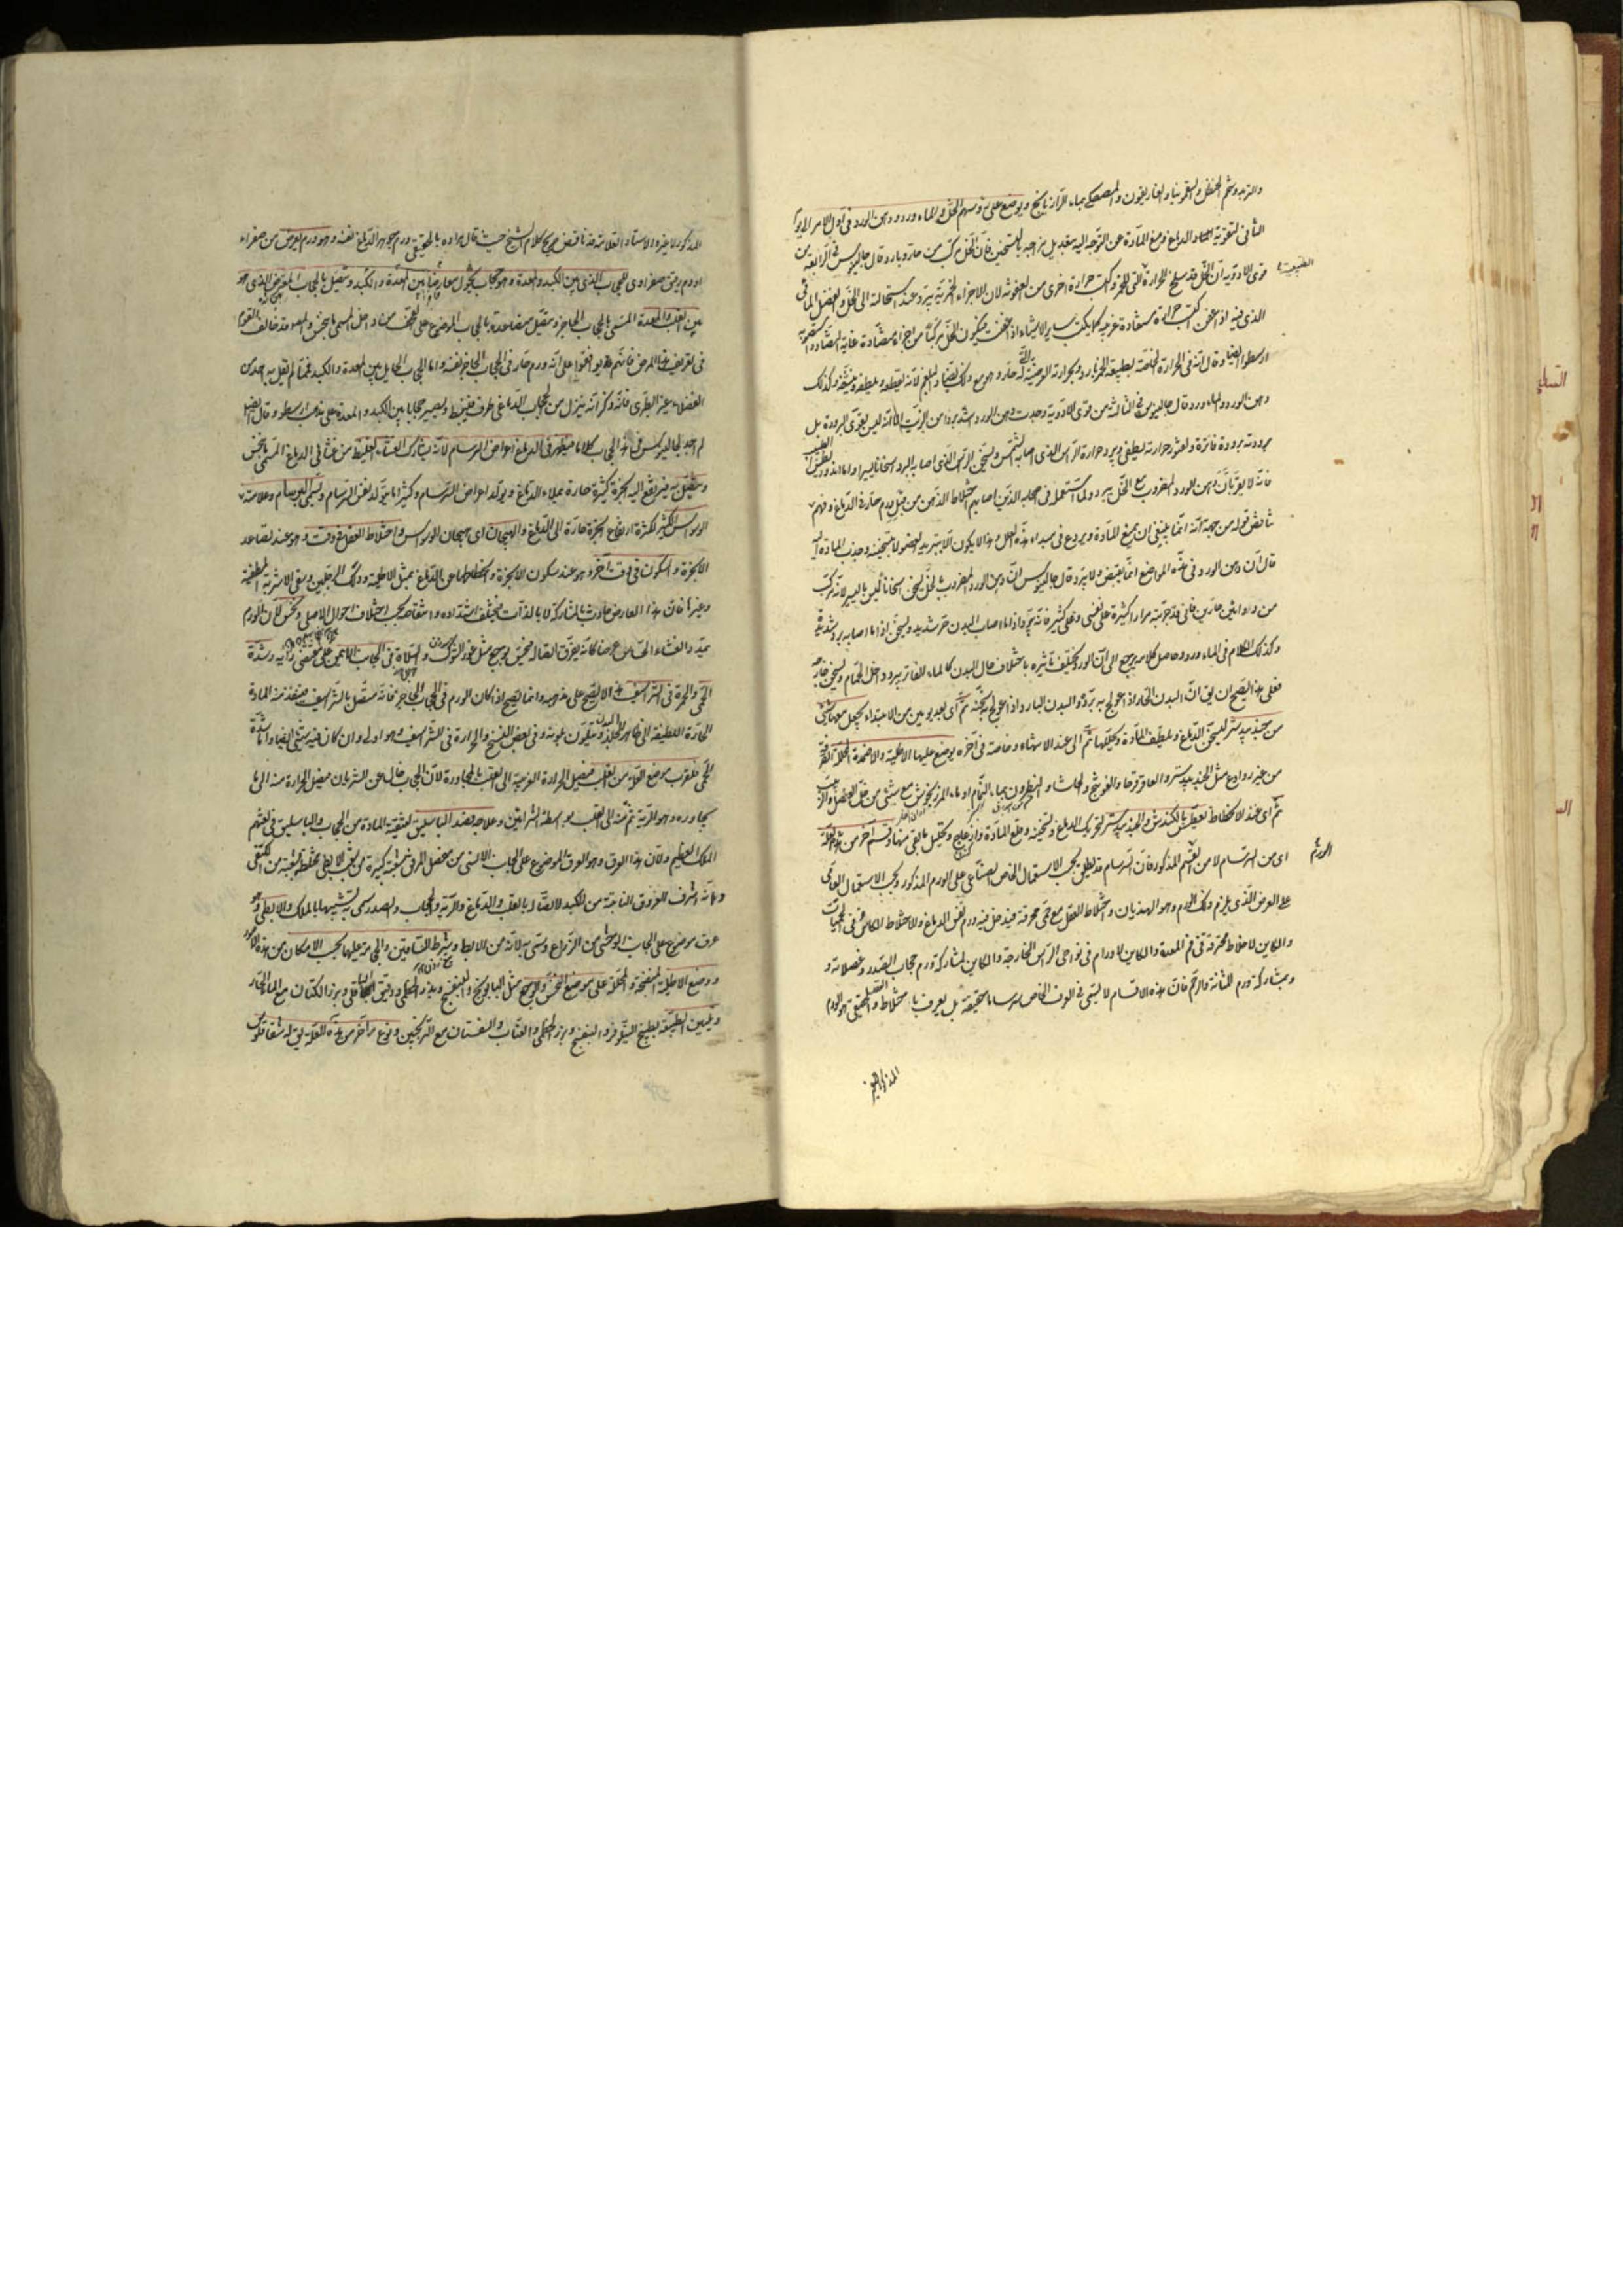 والتربد وشحم الحنظل والسقمونيا والغاريقون والمصطكى بماء الرازيانج ويوضع على رؤسهم الخل والماء ورد ودهن الورد فى اول الامر
الثانى لتقوية الدماغ ومنع المادة عن التوجه اليه بتعديل مزاجه بالتسخين فان الخل مركب من حار وبارد وقال جالينوس فى الرابعة من
قوى الادوية ان الخل قد سلخ الحرارة التى للخمر واكتسب حرارة اخرى من العفونة لان الاجزاء الخمرية تبرد عند استحالته الى الخل والفضل المائى
الذى فيه اذا عفن اكتسب حرارة مستفادة غريبة كما يكتسب ساير الاشياء اذا عفنت فيكون الخل مركبا من اجزاء متضادة غاية التضاد
ارسطو ايضا وقال انه فى الحرارة الخاصة بطبيعة الخمر بارد وبحرارته العرضية حار وهو مع ذلك ايضا للبلغم لانه يقطعه ويلطفه وينشفه وكذلك
دهن الورد والماء ورد وقال جالينوس فى الثالثة من قوى الادوية وجدت دهن الورد اشد بردا من الزيت الا انه ليس بقوى البرودة بل
برودته برودة فاترة ولفتور حرارته يطفى ويبرد حرارة الراس الذى اصابه الشمس ويسخن الراس الذى اصابه البرد اسخانا يسيرا
فانه لا يقر بان دهن الورد المضروب مع الخل يبرد ولما استعمله فى اصحابه الذين اصابهم اختلاط الذهن من قبل ورم حار فى الدماغ
ناقض قوله من جهة انه انما ينبغى ان يمنع المادة ويردع فى مبداء هذه العلل وهذا لا يكون الا بتبريد العضو لا بتسخينه وجذب المادة اليه
قال ان دهن الورد فى هذه المواضع انما يقبض ولا يبرد قال جالينوس ان دهن الورد المضروب بالخل يسخن اسخانا ليس باليسير لانه مركب
من دوائين حارين فانى قد جربته مرارا كثيرة على نفسى وعلى كثير فانه يبرد اذا ما اصاب البدن حر شديد ويسخن اذا ما اصابه برد شديد
وكذلك الكلام فى الماء ورد وحاصل كلامه يرجع الى ان الورد يختلف تاثيره باختلاف حال البدن كالماء الفاتر يبرد داخل الحمام ويسخن خارجه
فعلى هذا يصح ان يق ان البدن الحار اذا عولج به برده والبدن البارد اذا عولج به سخنه ثم اى بعد يومين من الابتداء يجعل معها شئ
من جندبيدستر ليسخن الدماغ ويلطف المادة ويحللها ثم الى عند الانتهاء وخاصة فى آخره يوضع عليها الاطلية والاضمدة المحللة
من غير روادع مثل الجندبيدستر والعاقرقرحا والفوتنج والحاشا والنطرون بماء النمام او ماء المرزنجوش مع شئ من خل العنصل
ثم اى عند الانحطاط تعطيس بالكندش والجندبيدستر لتحريك الدماغ وتسخينه وقلع المادة وازعاج وتحليل ما بقى منها وقسم آخر من هذه العلة
اى من السرسام لا من القسم المذكور فان السرسام قد يطلق بحسب الاستعمال الخاص الصناعى على الورم المذكور وبحسب الاستعمال العامى
على العرض الذى يلزم ذلك الورم وهو الهذيان واختلاط العقل مع حمى محرقة فيدخل فيه ورم نفس الدماغ والاختلاط الكاين فى الحميات
والكاين لاخلاط محترقة فى فم المعدة والكاين لاورام فى نواحى الراس الخارجة والكاين لمشاركة ورم حجاب الصدر وعضلاته و
وبمشاركة ورم المثانة والرحم فان هذه الاقسام لا يسمى فى العرف الخاص سرساما حقيقة بل يعرف باختلاط العقل والحقيقى هو الورم
المذكور لا غير
الورم
المذكور لا غيره والاستاد العلامة قد ناقض صريح كلام الشيخ حيث قال مراده بالحقيقى ورم جوهر الدماغ نفسه وهو ورم يعرض من صفراء
او دم رقيق صفراوى للحجاب الذى بين الكبد والمعدة وهو حجاب يحول معارضا بين المعدة والكبد ويتصل بالحجاب المعترض الذى هو
بين القلب والمعدة المسمى بالحجاب الحاجز ويتصل متصاعدة بالحجاب الموضوع على القحف
فى تعريف هذا المرض فانهم اتفقوا على انه ورم حار فى الحجاب الحاجز نفسه واما الحجاب الحايل بين المعدة والكبد فمما لم يقل به احد من
الفضلاء غير الطبرى فانه ذكر انه ينزل من حجاب الدماغى طرف فينبسط ويصير حجابا بين الكبد والمعدة على مذهب ارسطو وقال ايضا
لم اجد لجالينوس فى هذا الحجاب كلاما فيظهر فى الدماغ اعراض السرسام لانه يشارك الغشاء الغليظ من غشائى الدماغ المسمى
ويتصل به فيرتفع اليه ابخرة كثيرة حارة يملاء الدماغ ويولد اعراض السرسام وكثيرا ما يتولد نفس السرسام ويسمى البرسام وعلامته
الوسواس الكثير لكثرة ارتفاع ابخرة حارة الى الدماغ والهيجان اى هيجان الوسواس واختلاط العقل فى وقت وهو عند تصاعد
الابخرة والسكون فى وقت آخر وهو عند سكون الابخرة وانحطاطها عن الدماغ بمثل الاطلية ودلك الرجلين وسقى الاشربة المطفئة
وغيرها فان هذا العارض حادث بالمشاركة لا بالذات يختلف اشتداده وانتقاصه بحسب اختلاف احوال الاصلى ونخس لان الورم
يمدد الغشاء الحساس عرضا كانه يفرق اتصاله فيحس بوجع مثل غرز الشوك والسلاة فى الحجاب
الحمى والحمرة فى الشراسيف هذا لا يصح على مذهبه وانما يصح اذا كان الورم فى الحجاب الحاجز فانه متصل بالشراسيف فينفذ منه المادة
الحارة اللطيفة الى ظاهر الجلد ويتلون بلونه وفى بعض النسخ والحرارة فى الشراسيف وهو اولى وان كان فيه شئ ايضا واما شدة
الحمى فلقرب موضع العلة من القلب فيصل الحرارة الغريبة الى القلب بالمجاورة لان الحجاب خال عن الشريان فيصل الحرارة منه الى ما
يجاوره وهو الرية ثم منه الى القلب بواسطة الشرائين وعلاجه فصد الباسليق لتنقية المادة من الحجاب والباسليق فى لغتهم
الملك العظيم ولان هذا العرق وهو العرق الموضوع على الجانب الانسى من مفصل المرفق
ولانه اشرف العروق النابتة من الكبد لاتصاله بالقلب والدماغ والرية والحجاب والصدر سمى به تشبيها بالملك والابطى وهو
عرق موضوع على الجانب الوحشى من الذراع وسمى به لانه من الابط وشرط الساقين والحجامة عليها بحسب الامكان من هذه الامور
ووضع الاطلية المنضجة والمحللة على موضع النخس والوجع مثل البابونج والبنفسج وبزر الخطمى ودقيق الباقلى وبزر الكتان مع الماء الحار
وتليين الطبيعة بطبيخ النيلوفر والبنفسج وبزر الخطمى والعناب والسفستان مع الترنجبين ونوع آخر من هذه العلة يق له شقاقلوس